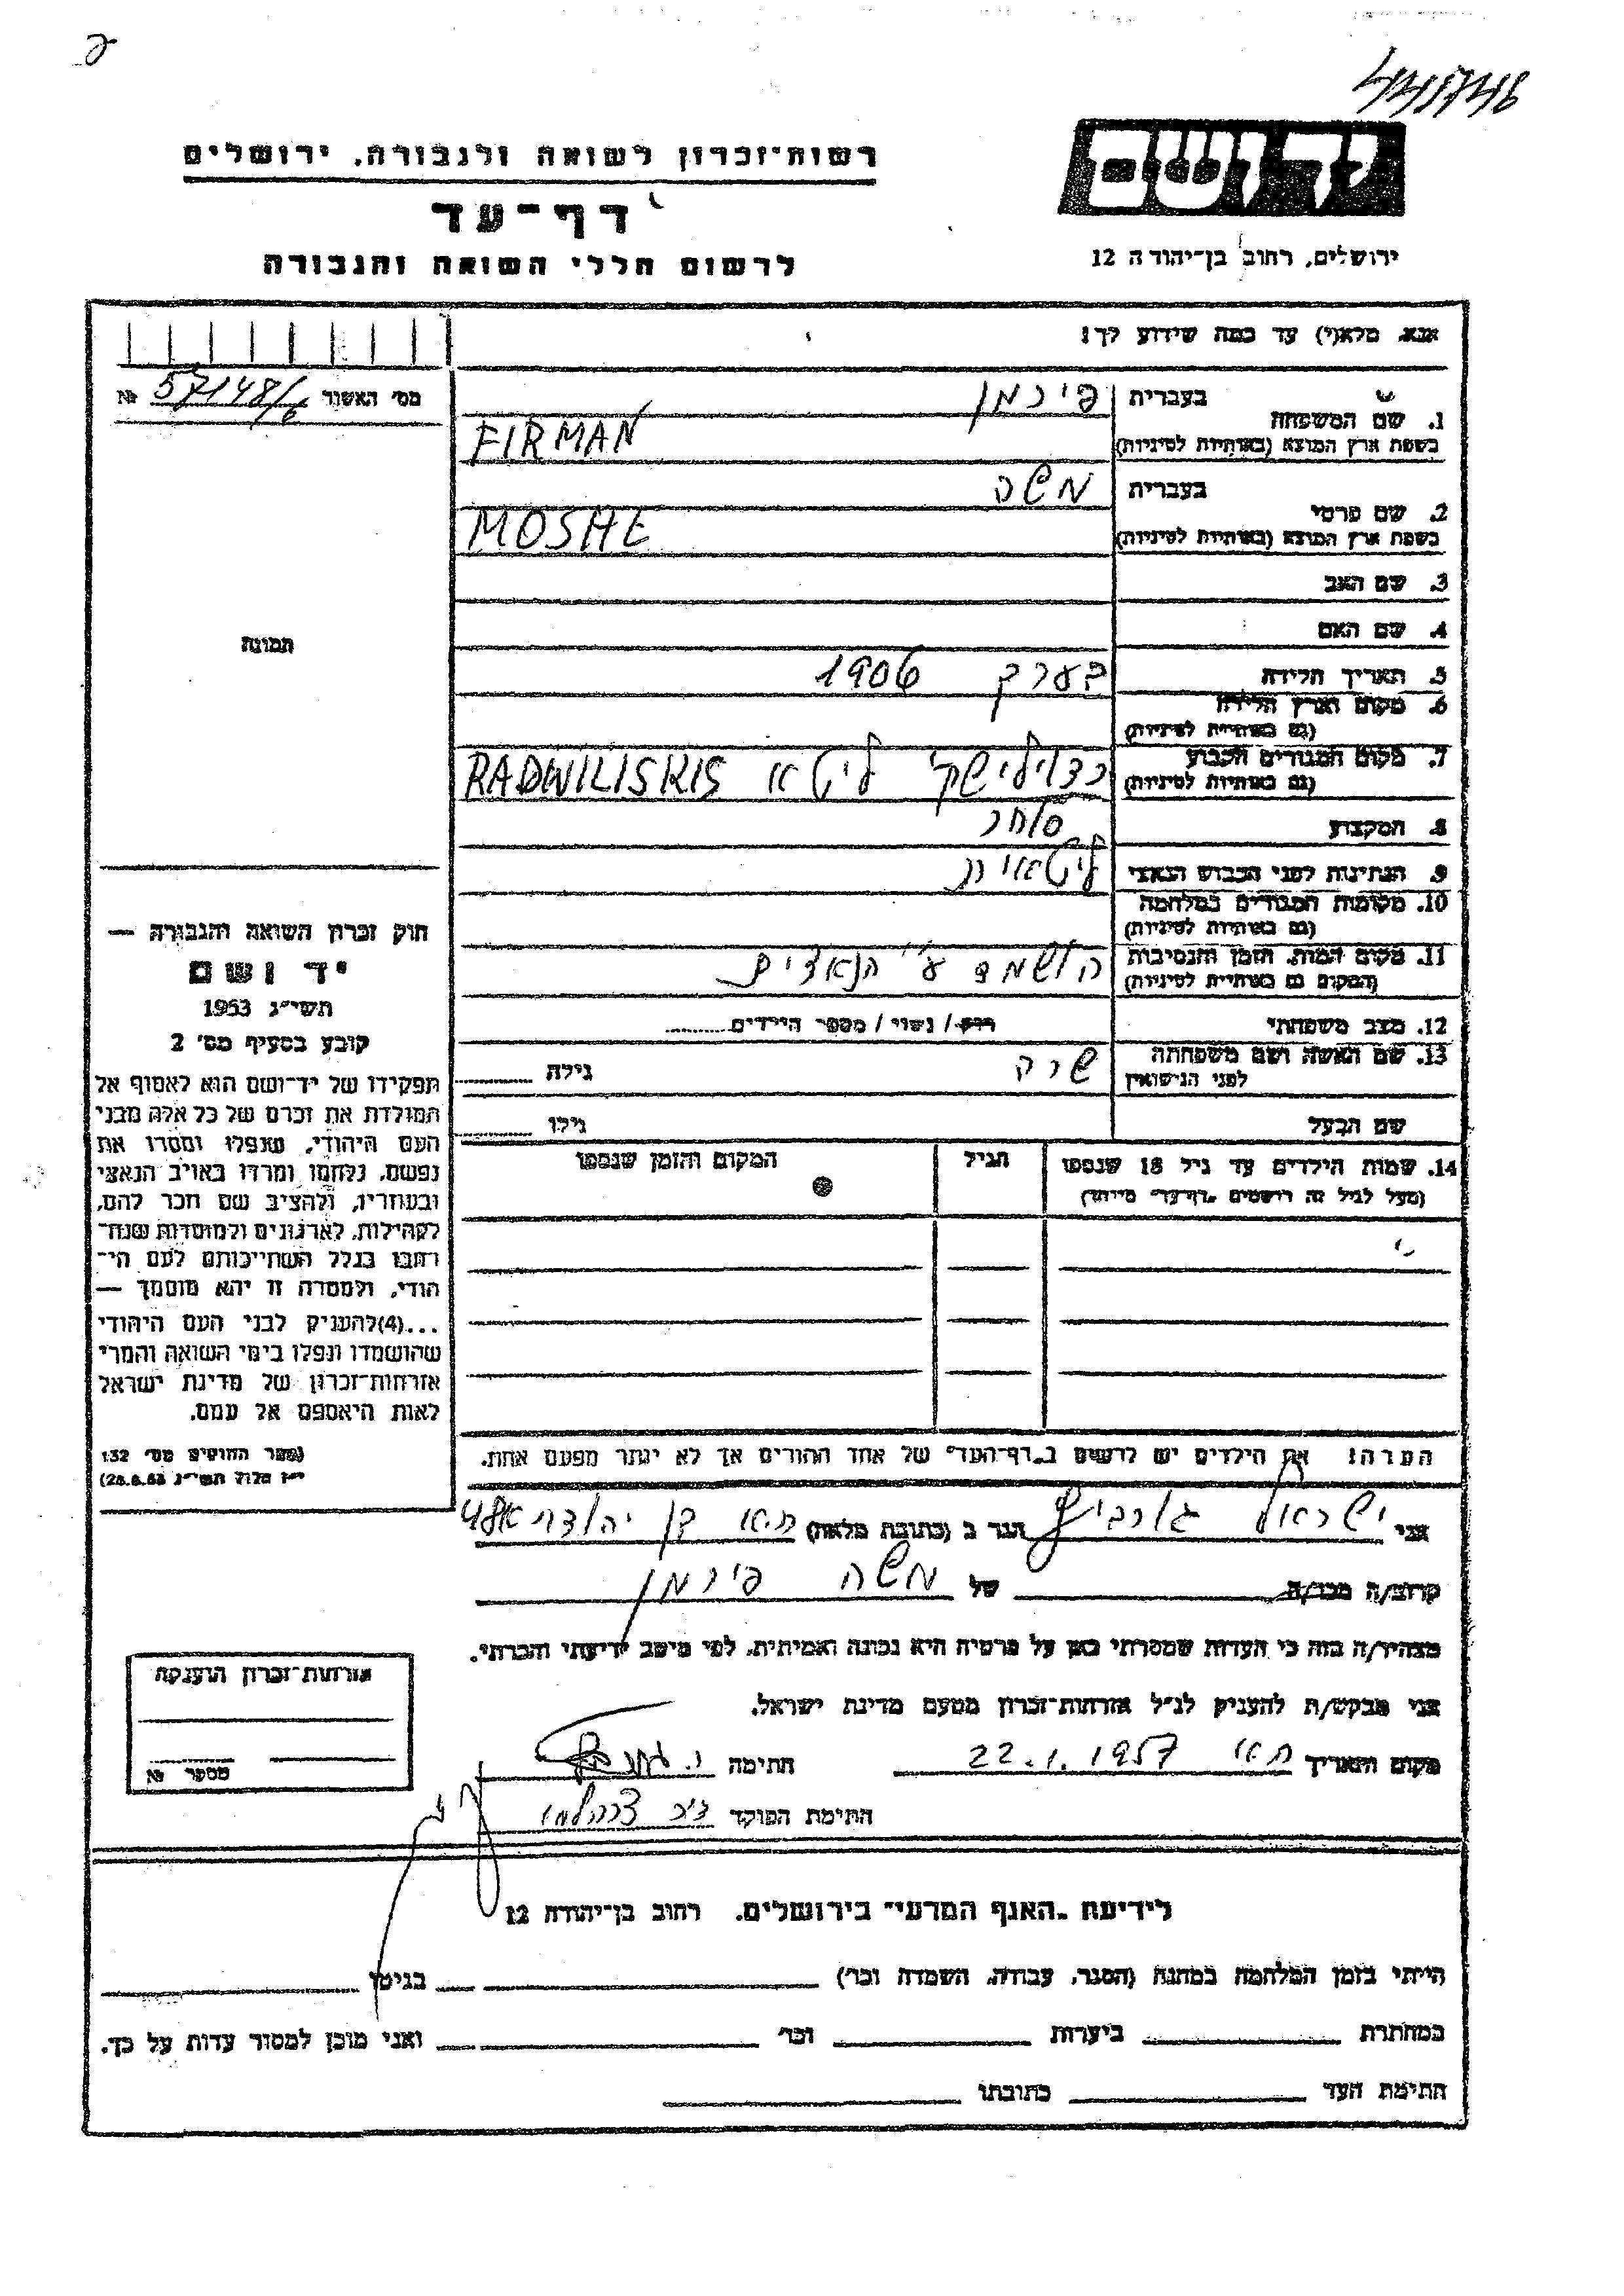 יד ושם
רשות־זכרון לשואה ולגבורה, ירושלים
דף־עד
לרשום חללי השואה והגבורה
ירושלים, רחוב בן־יהודה 12
אנא, מלא(י) עד כמה שידוע לך!
מס' האשור 57148/6 №
1. שם המשפחה
בעברית פירמן
בשפת ארץ המוצא (באותיות לטיניות) FIRMAN
2. שם פרטי
בעברית משה
בשפת ארץ המוצא (באותיות לטיניות) MOSHE
3. שם האב
4. שם האם
תמונה
5. תאריך הלידה בערך 1906
6. מקום וארץ הלידה
(גם באותיות לטיניות)
7. מקום המגורים הקבוע רדוילישקי ליטא RADWILISKIS
(גם באותיות לטיניות)
8. המקצוע סוחר
9. הנתינות לפני הכבוש הנאצי ליטאית
10. מקומות המגורים במלחמה
(גם באותיות לטיניות)
11. מקום המות, הזמן והנסיבות הושמד ע"י הנאצים
(המקום גם באותיות לטיניות)
12. מצב משפחתי רוק/ נשוי / מספר הילדים
13. שם האשה ושם משפחתה שרה גילה
לפני הנישואין
שם הבעל גילו
14. שמות הילדים עד גיל 18 שנספו הגיל המקום והזמן שנספו
(מעל לגיל זה רושמים „דף־עד" מיוחד)
הערה! את הילדים יש לרשום ב„דף־העד" של אחד ההורים אך לא יותר מפעם אחת.
חוק זכרון השואה והגבורה —
יד ושם
תשי"ג 1953
קובע בסעיף מס' 2
תפקידו של יד־ושם הוא לאסוף אל
המולדת את זכרם של כל אלה מבני
העם היהודי, שנפלו ומסרו את
נפשם, נלחמו ומרדו באויב הנאצי
ובעוזריו, ולהציב שם וזכר להם,
לקהילות, לארגונים ולמוסדות שנח־
רחבו בגלל השתייכותם לעם הי־
הודי, ולמטרה זו יהא מוסמך —
...(4)להעניק לבני העם היהודי
שהושמדו ונפלו בימי השואה והמרי
אזרחות־זכרון של מדינת ישראל
לאות היאספם אל עמם.
(ספר החוקים מס' 132
י"ז אלול תשי"ג 28.8.53)
אני ישראל גורביץ הגר ב (כתובת מלאה) ת"א בן יהודה
קרוב/ה מכר/ה של משה פירמן
מצהיר/ה בזה כי העדות שמסרתי כאן על פרטיה היא נכונה ואמיתית, לפי מיטב ידיעתי והכרתי.
אני מבקש/ת להעניק לנ"ל אזרחות־זכרון מטעם מדינת ישראל.
מקום ותאריך ת"א 22.1.1957 חתימה
חתימת הפוקד
אזרחות־זכרון הוענקה
מספר №
לידיעת „האגף המדעי" בירושלים, רחוב בן־יהודה 12
הייתי בזמן המלחמה במחנה (הסגר, עבודה, השמדה וכו') בגיטו
במחתרת ביערות וכו' ואני מוכן למסור עדות על כך.
חתימת העד כתובתו